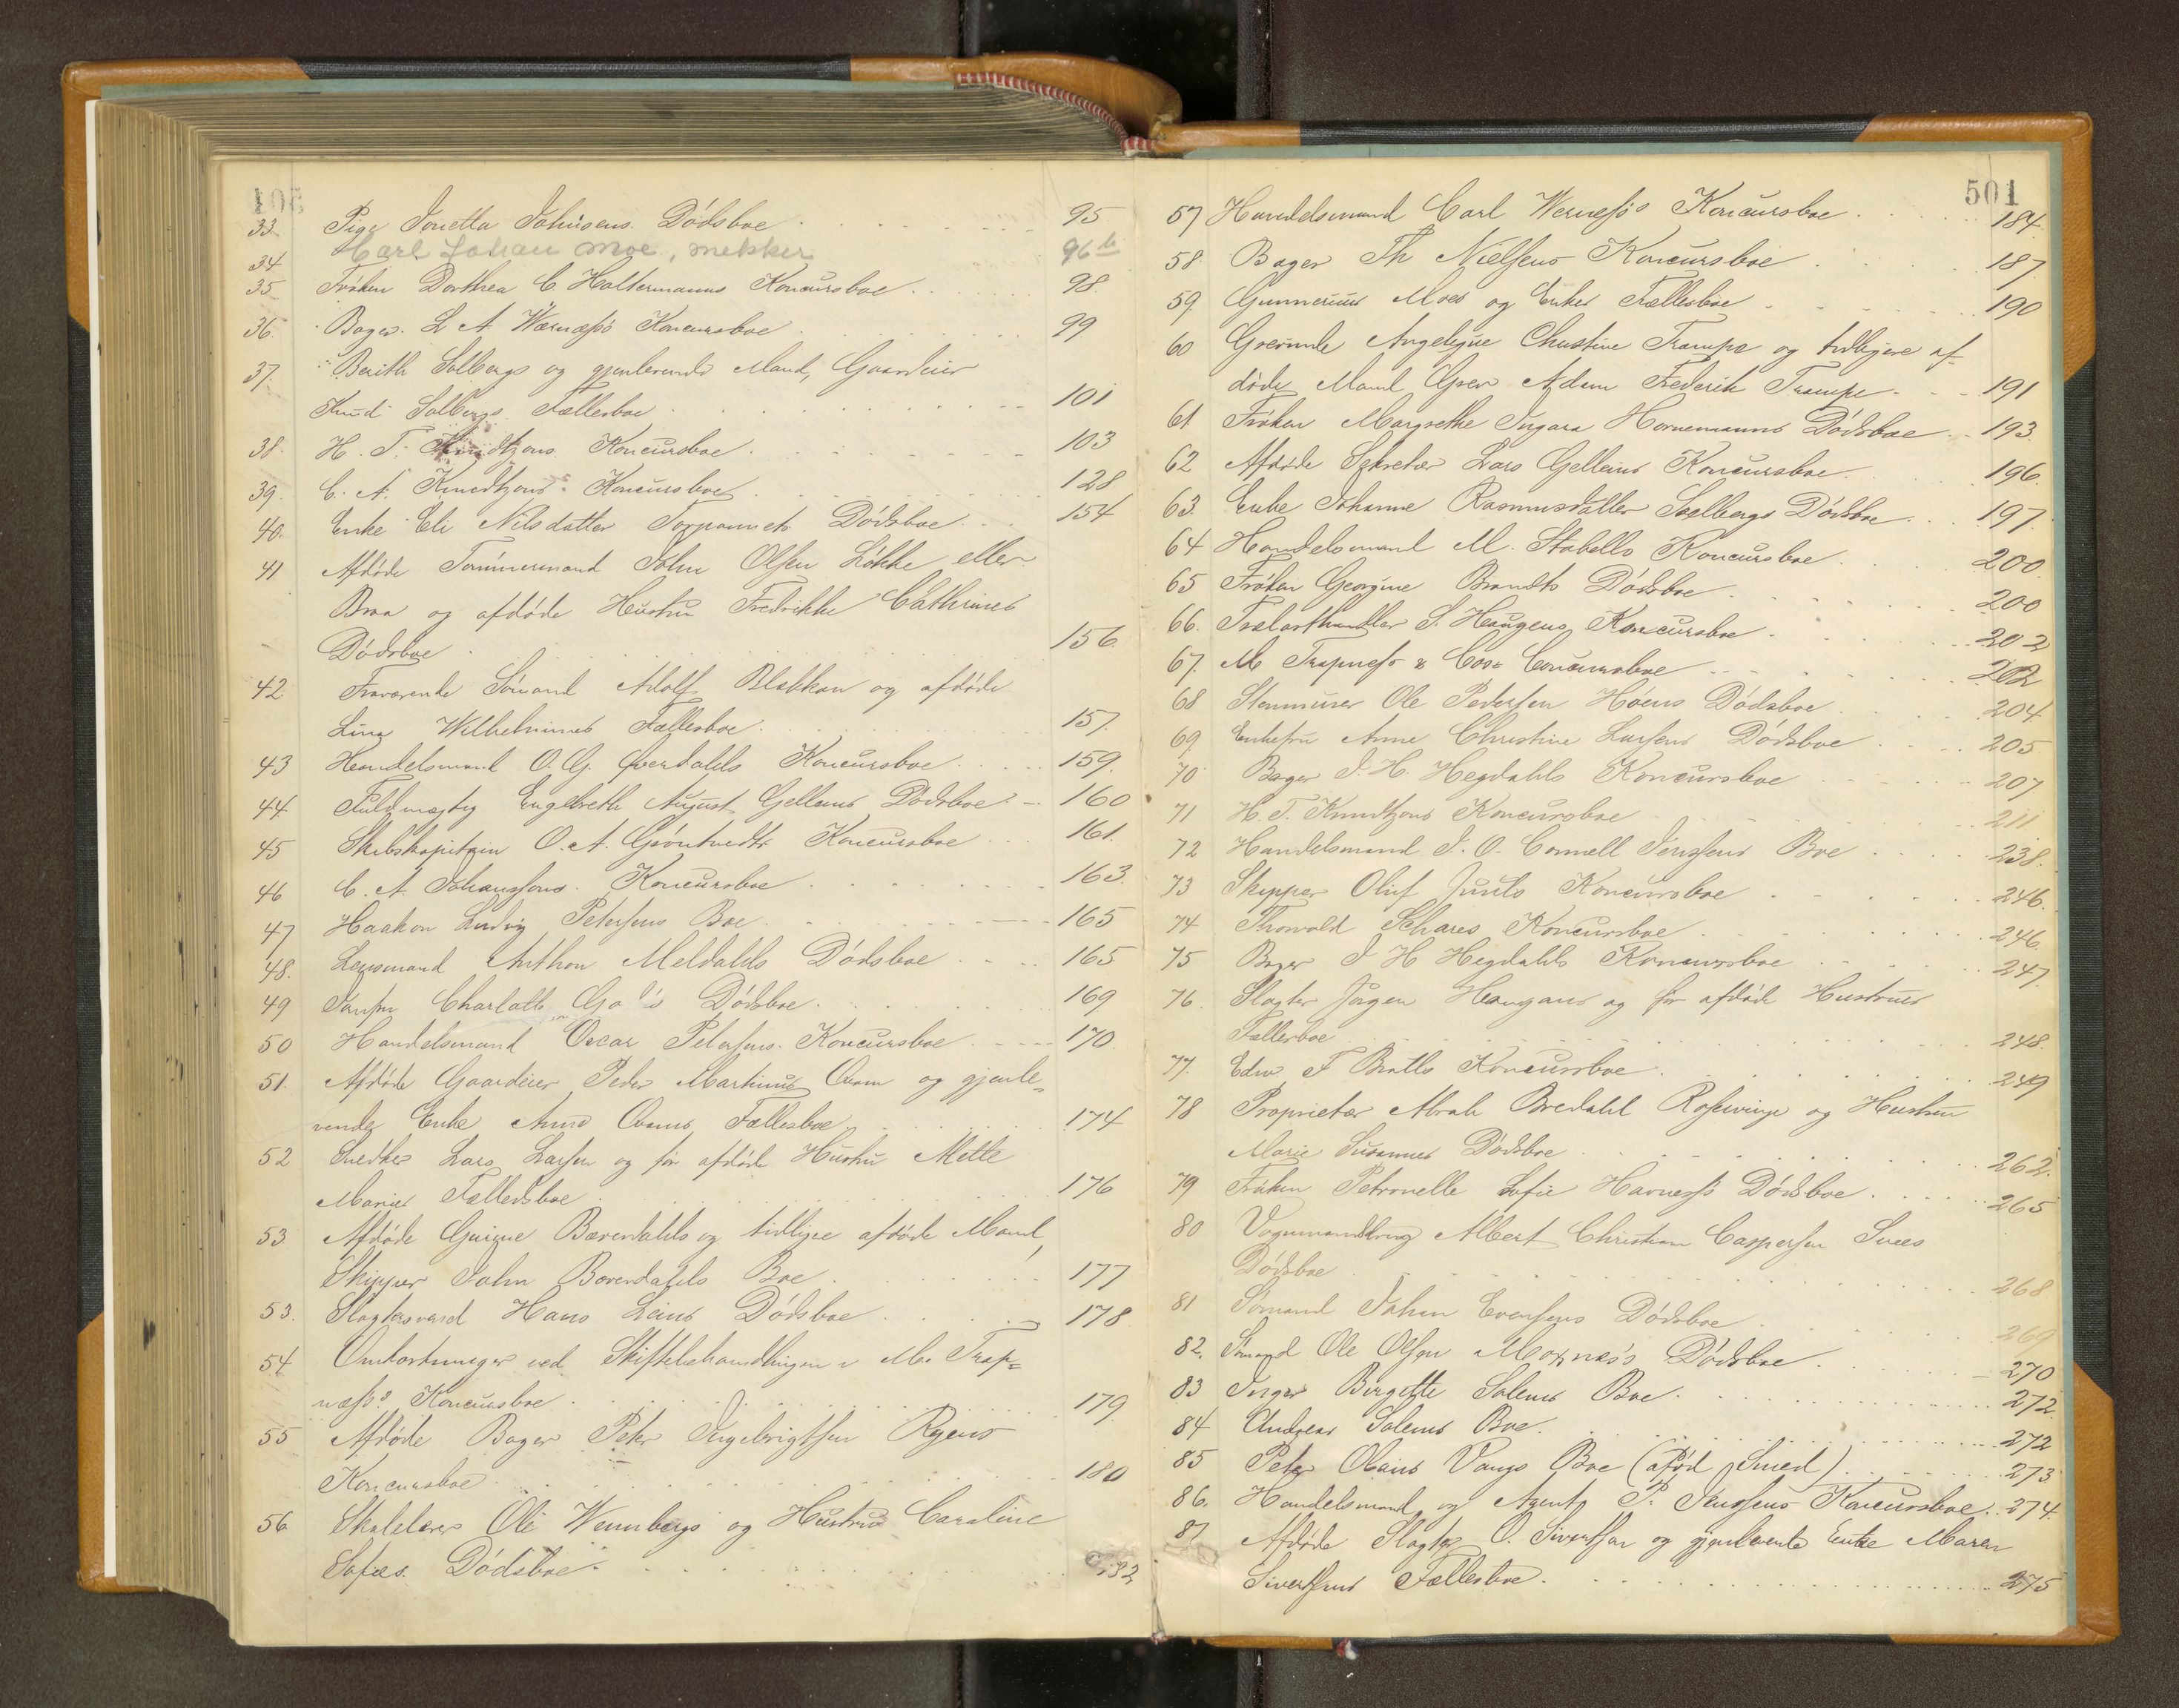 33. Pige Jonetta Johnsens Dødsboe 95
34 Carl Johan Moe, mekker 96b
35 Frøken Dorthea C Haltermanns Koncursboe 98
36. Bager L A Wærnæss's Koncursboe 99
37. Berith Solbergs og gjenlevende Mand, Gaardeier
Knud Solbergs Fællesboe 101
38. H. T. Knudtzons Koncursboe 103
39. C. A. Knudtzons Koncursboe 128
40. Enke Eli Nilsdatter Dødsboe 154
41 Afdøde Tømmermand John Olsen Løkke eller
Braa og afdøde Hustru Fredrikke Cathrines
Dødsboe 156
42 Fraværende Sømand Adolf Blekkan og afdøde
Lina Wilhelmines Fællesboe 157.
43 Handelsmand O. G. Koncursboe 159.
44 Fuldmægtig Engelbreth August Gelleins Dødsboe 160
45 Skibskaptein O. A. Grøntvedts Koncursboe 161.
46 C. A. Johanssons Koncursboe 163.
47 Haakon Ludvig Petersens Boe 165
48. Lensmand Anthon Meldahls Dødsboe 165
49 Jomfru Charlotte Dødsboe 169
50 Handelsmand Oscar Petersens Koncursboe 170
51. Afdøde Gaardeier Peder Martinus Qvam og gjenle-
vende Enke Anne Qvams Fællesboe 174
52 Snedker Lars Larsen og før afdøde Hustru Mette
Maries Fællesboe 176
53 Afdøde Guine Bærendahls og tidligere afdøde Mand,
Skipper John Bærendahls Boe 177
53. Slagtersvend Hans Leins Dødsboe 178
54 Omkostninger ved Skiftebehandlingen i M. Trap-
næss's Koncursboe 179
55 Afdøde Bager Peter Ingebrigtsen Ryens
Koncursboe 180
56 Skolelærer Ole Wennbergs og Hustru Caroline
Sofies Dødsboe 182
501
57 Handelsmand Carl Werness's Koncursboe 184.
58. Bager Th Nielsens Koncursboe 187
59. Gunnerius Moes og Enkes Fællesboe 190
60 Grevinde Angelique Christine Trampe og tidligere af-
døde Mand Grev Adam Frederik Trampe 191
61 Frøken Margrethe Ingara Hornemanns Dødsboe 193
62 Afdøde Sekretær Lars Gelleins Koncursboe 196.
63. Enke Johanne Rasmusdatter Soelbergs Dødsboe 197.
64 Handelsmand M. Stabells Koncursboe 200.
65 Frøken Georgine Brandts Dødsboe 200
66. Trælasthandler S. Haugens Koncursboe 202
67. M Trapness & Co's Concursboe 202
68 Stenmurer Ole Pedersen Høens Dødsboe 204.
69. Enkefru Anne Christine Larsens Dødsboe 205
70 Bager J. H. Hegdahls Koncursboe 207
71 H. T. Knudtzons Koncursboe 211
72 Handelsmand J. O. Cornell Jenssens Boe 238.
73 Skipper Oluf Juuls Koncursboe 246.
74 Thorvald Schares Koncursboe 246
75 Bager J H Hegdahls Koncursboe 247.
76. Slagter Jørgen Haugans og før afdøde Hustrues
Fællesboe 248.
77. Edw. F Bratts Koncursboe 249
78 Proprietær Abrah Bredahl Rosenvinge og Hustru
Marie Susannes Dødsboe 262.
79 Frøken Petronelle Sofie Havness's Dødsboe 265
80 Vognmandsdreng Albert Christian Caspersen Svees
Dødsboe 268
81 Sømand Johan Evensens Dødsboe 269
82. Sømand Ole Olsen Moxnæs's Dødsboe 270
83 Inger Birgitte Solems Boe 272.
84 Andreas Solems Boe 272
85 Peter Olaus Vangs Boe (afdød Smed) 273
86. Handelsmand og Agent P. Jenssens Koncursboe 274
87 Afdøde Slagter O. Sivertsen og gjenlevende Enke Maren
Sivertsens Fællesboe 275